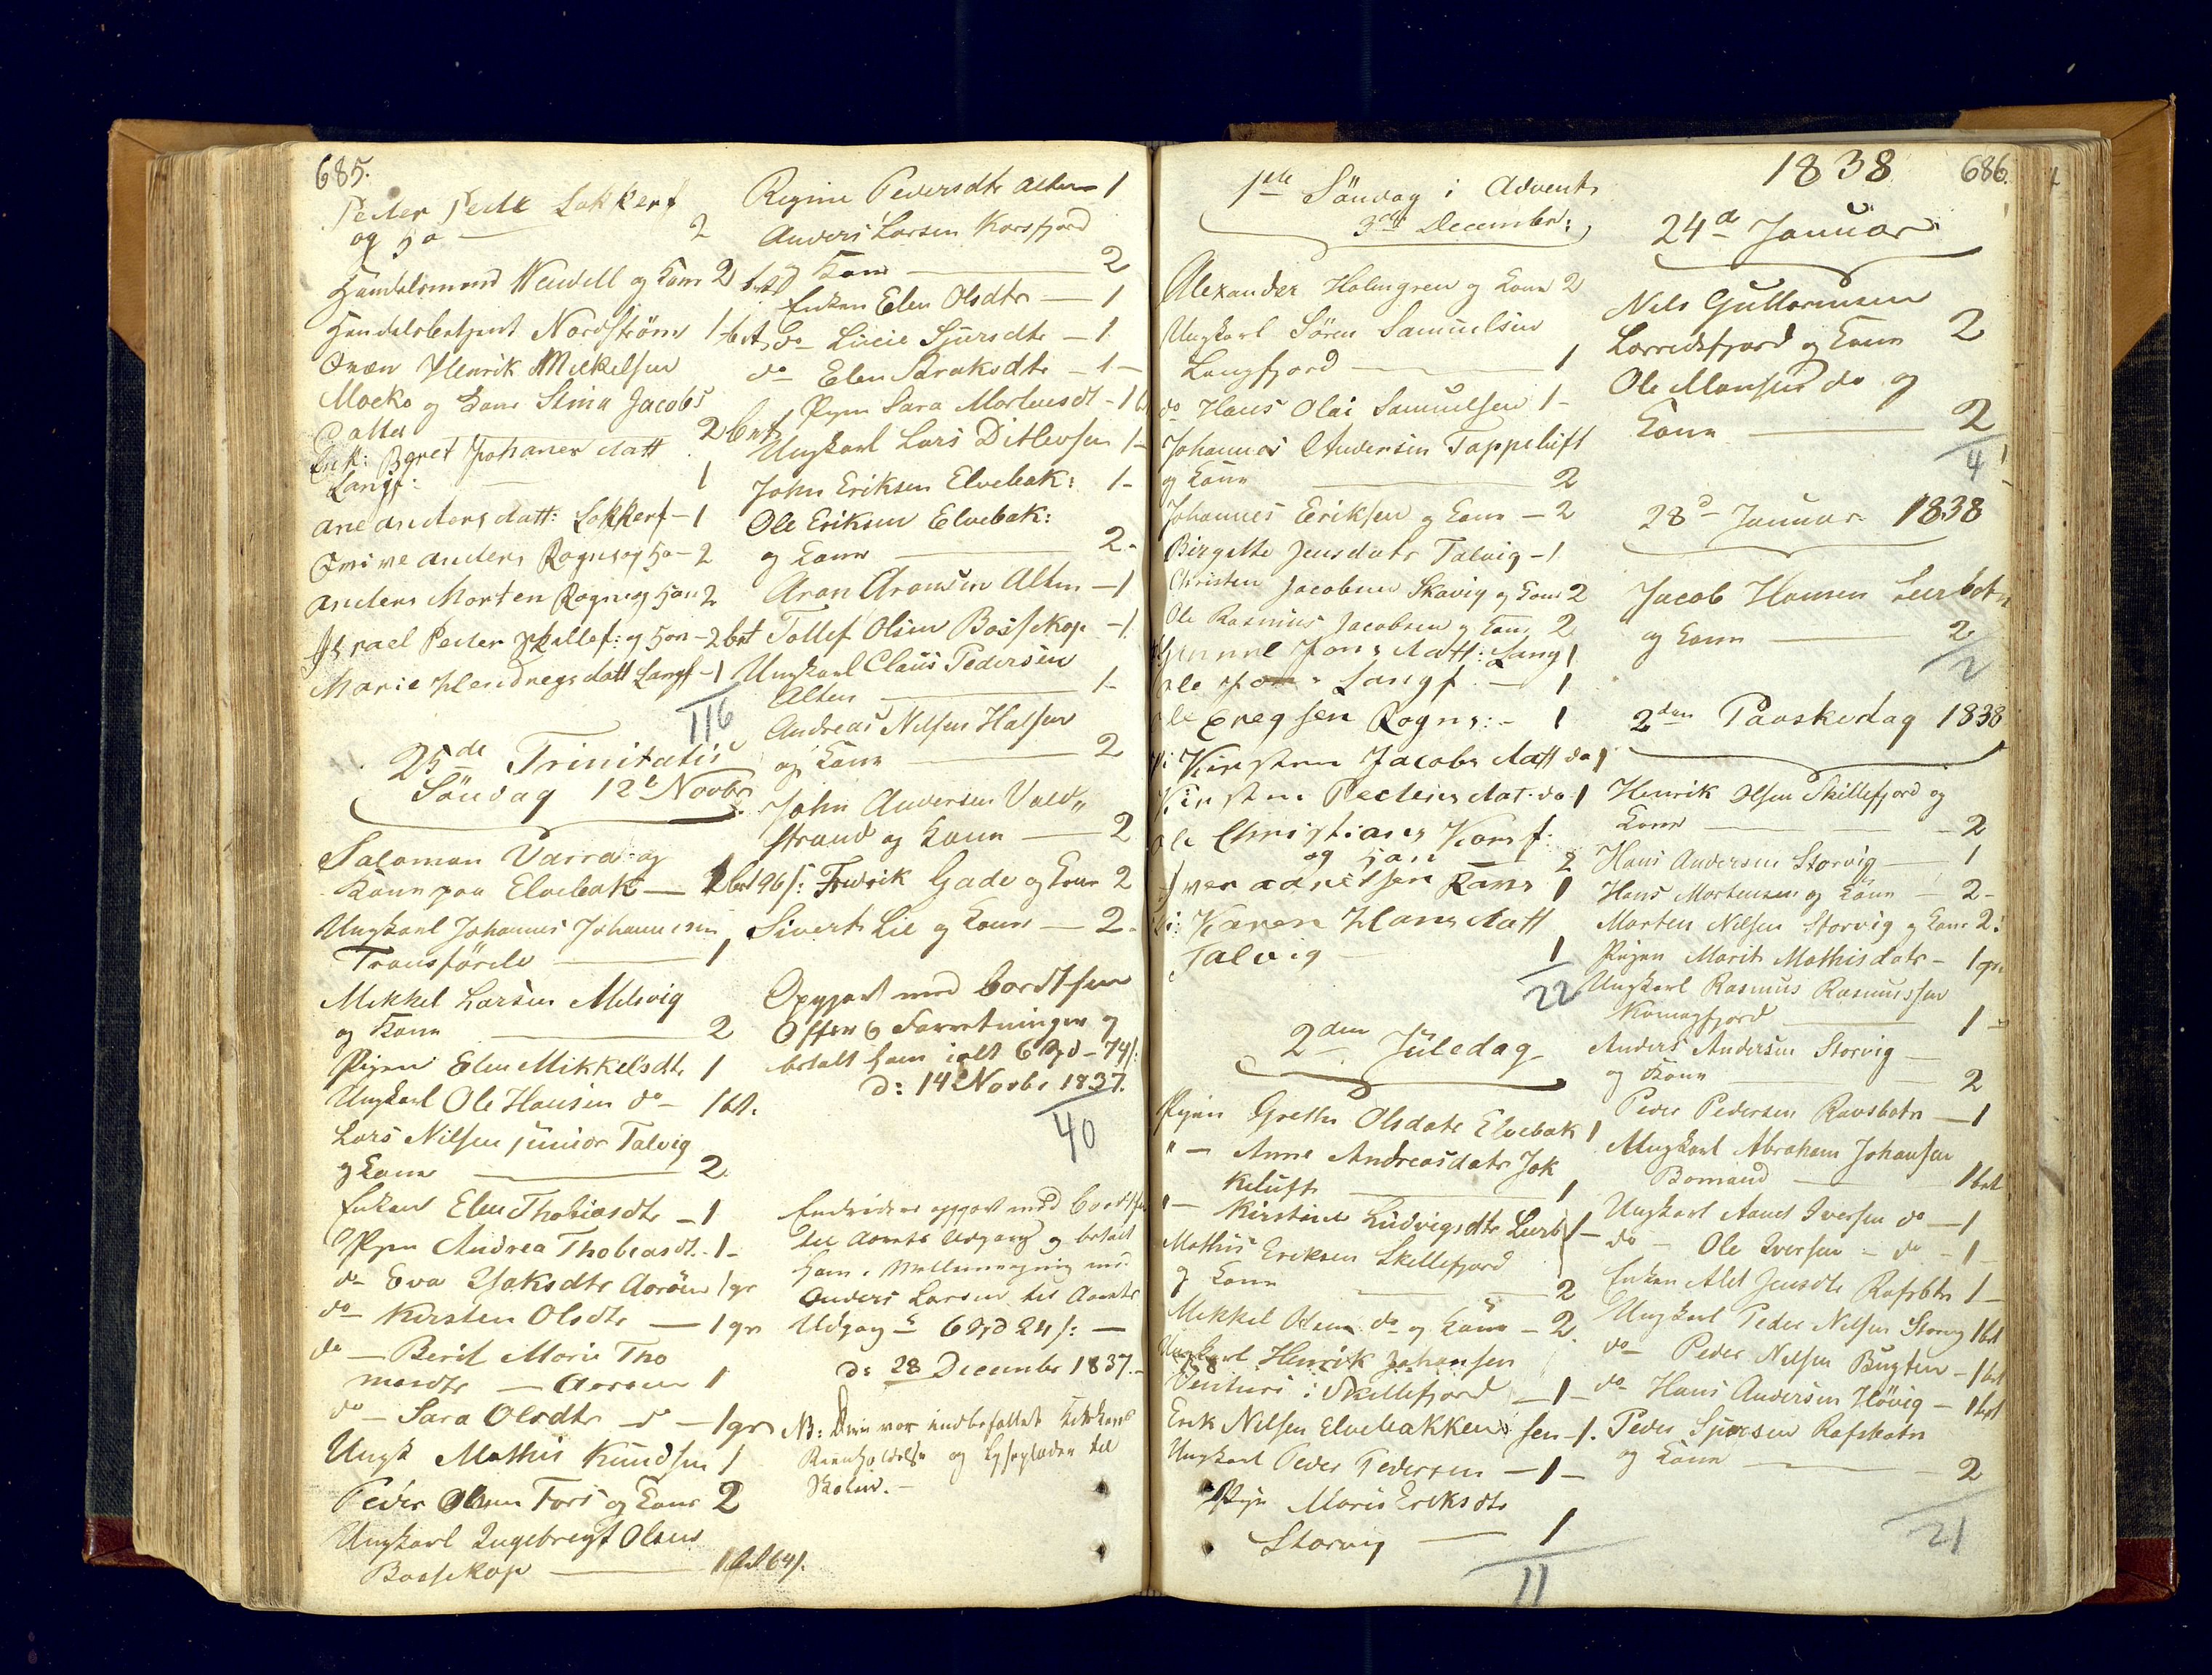 685.
Peder Pede Lokkerf
og Ho — 2
Handelsmand Wendell og Kone 2 bet
Handelsbetjent Nordström 1 bet
Qvæn Henrik Mikkelsen
Mocko og Kone Stina Jacobs
Datter 2 bet
Enk: Beret Johanes datt
Langf: — 1
Ane Anders datt: Lokkerf – 1
Anders Rogns og Ho – 2
Anders Morten Rogns og Hon 2
Israel Peder Skillef: og Hon – 2 bet
Marie Hendregs datt Langf – 1
116
25de Trinitatis
Söndag 12t Novbr
Salomon Varra og
Kone paa Elvebak — 2 bet 96/:
Ungkarl Johannes Johannesen
Transfarelv — 1
Mikkel Larsen Melsvig
og Kone — 2
Pigen Elen Mikkelsdtr 1
Ungkarl Ole Hansen do – 1 bt.
Lars Nilsen junior Talvig
og Kone — 2
Enken Elen Thobiasdtr – 1
Pigen Andrea Thobiasdt. 1 –
do Eva Isaksdtr Aaröen 1 gr
do Kirsten Olsdtr — 1 gr
do — Berit Marie Tho
masdtr — Aaröen 1
do – Sara Olsdtr – do – 1 gr
Ungk Mathis Knudsen 1
Peder Olsen Fors og Kone 2
Ungkarl Ingebregt Olsen
Bossekop — 1 bet 64/.
Regine Pedersdtr Alten – 1
Anders Larsen Korsfjord
og Kone — 2
Enken Elen Olsdtr — 1
do – Lucie Sjursdtr – 1
do – Elen Isaksdtr – 1 –
Pigen Sara Mortensdt – 1
Ungkarl Lars Ditlevsen 1 –
John Eriksen Elvebak: 1 –
Ole Eriksen Elvebak:
og Kone — 2 –
Aron Aronsen Alten – 1
Tollef Olsen Bossekop – 1
Ungkarl Claus Pedersen
Alten — 1 –
Andreas Nilsen Halsen
og Kone — 2
John Andersen Vold„
strand og Kone — 2
Fredrik Gade og Kone 2
Sivert Lie og Kone — 2 –
Opgjort med Cordtsen
Offer 6 Forretninger og
betalt ham ialt 6 Spd – 74/:
d: 14 Novbr 1837.
40
Endvidere opgjort med Cordtsen
til Aarets Udgang og betalt
ham i Mellemregning med
Anders Larsen til Aarets
Udgang 6 Spd 24/: —
d: 28 December 1837. –
NB: Deri var indbefattet Kirkens
Reenholdelse og Lyseplader til
Skolen. –
1838
686.
1ste Söndag i Advent
3die December:
Alexander Holmgren og Kone 2
Ungkarl Sören Samuelsen
Langfjord — 1
do Hans Olai Samuelsen 1 –
Johannes Andersen Tappeluft
og Kone — 2
Johannes Eriksen og Kone – 2
Birgitte Jensdatr Talvig – 1
Christen Jacobsen Skavig og Kone 2
Ole Rasmus Jacobsen og Kone 2
Gunnel Jons datt: Lang 1
Ole Jons Langf. – 1
Ole Eregsen Rogns: – 1
Pi Kirsten Jacobs datt do 1
Kirsten Peders dat. do 1
Ole Christians Korsf:
og Hon 2
Iver Ravs 1
Pi: Karen Hans datt
Talvig — 1
22
2den Juledag
Pigen Grethe Olsdatr Elvebak 1
" – Anne Andreasdatr Jok
keluft — 1
" – Kirstine Ludvigsdtr Leerb 1 –
Mathis Eriksen Skillefjord
og Kone — 2
Mikkel Olsen do og Kone – 2
Ungkarl Henrik Johansen
Venturi i Skillefjord — 1 –
Erik Nilsen Elvebakken sen – 1.
Ungkarl Peder Pedersen – 1 –
Pige Marie Eriksdtr
Storvig — 1
11
24de Januar
Nils Guttormsen
Lærredsfjord og Kone 2
Ole Monsen do og
Kone — 2
4
28de Januar 1838
Jacob Hansen Leerbotn
og Kone — 2
2
2den Paaskedag 1838
Henrik Olsen Skillefjord og
Kone — 2
Hans Andersen Storvig — 1
Hans Mortensen og Kone – 2 –
Morten Nilsen Storvig og Kone 2:
Pigen Marit Mathisdatr – 1 gr
Ungkarl Rasmus Rasmussen
Komagfjord — 1 –
Anders Andersen Storvig —
og Kone — 2
Peder Pedersen Ravsbotn — 1
Ungkarl Abraham Johansen
Bomand — 1 bet
Ungkarl Iversen do — 1
do – Ole Iversen – do – 1
Enken Alet Jensdtr Rafsbtn 1 –
Ungkarl Peder Nilsen Storvig 1 bt
do Peder Nilsen Bugten – 1 bt
do Hans Andersen Hövig – 1 bt
Peder Sjursen Rafsbotn
og Kone — 2
21